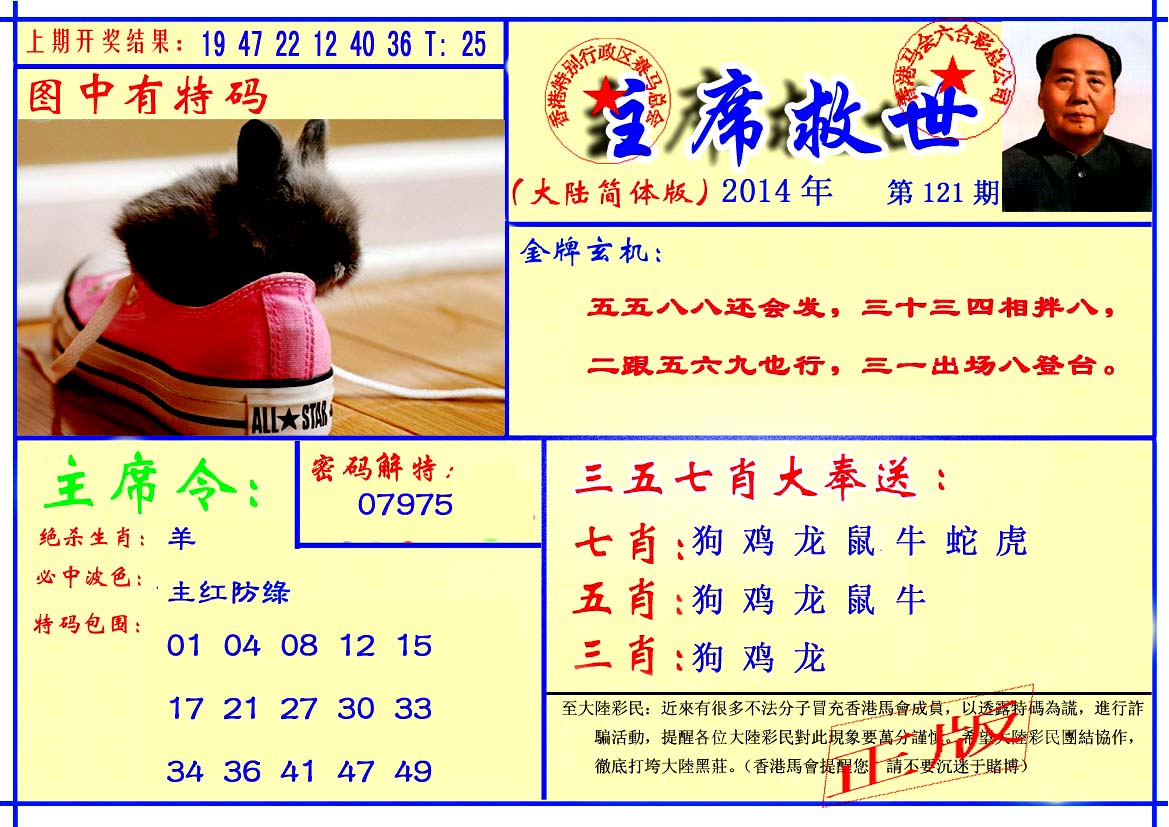 上期开奖结果：19 47 22 12 40 36 T: 25
图中有特码
ALL★STAR
香港特别行政区赛马总会
香港马会六合彩总公司
主席救世
（大陆简体版）2014年 第121期
金牌玄机：
五五八八还会发，三十三四相拌八，
二跟五六九也行，三一出场八登台。
主席令：
绝杀生肖：羊
必中波色：主红防绿
特码包围：
01 04 08 12 15
17 21 27 30 33
34 36 41 47 49
密码解特：
07975
三五七肖大奉送：
七肖：狗 鸡 龙 鼠 牛 蛇 虎
五肖：狗 鸡 龙 鼠 牛
三肖：狗 鸡 龙
至大陸彩民：近來有很多不法分子冒充香港馬會成員，以透露特碼為謊，進行詐
騙活動，提醒各位大陸彩民對此現象要萬分謹慎。希望大陸彩民團結協作，
徹底打垮大陸黑莊。（香港馬會提醒您 請不要沉迷于賭博）
正版